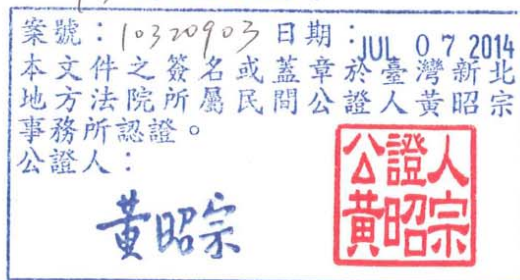 案號：10320903 日期：JUL 07 2014
本文件之簽名或蓋章於臺灣新北
地方法院所屬民間公證人黃昭宗
事務所認證。
公證人：
黃昭宗
公證人
黃昭宗